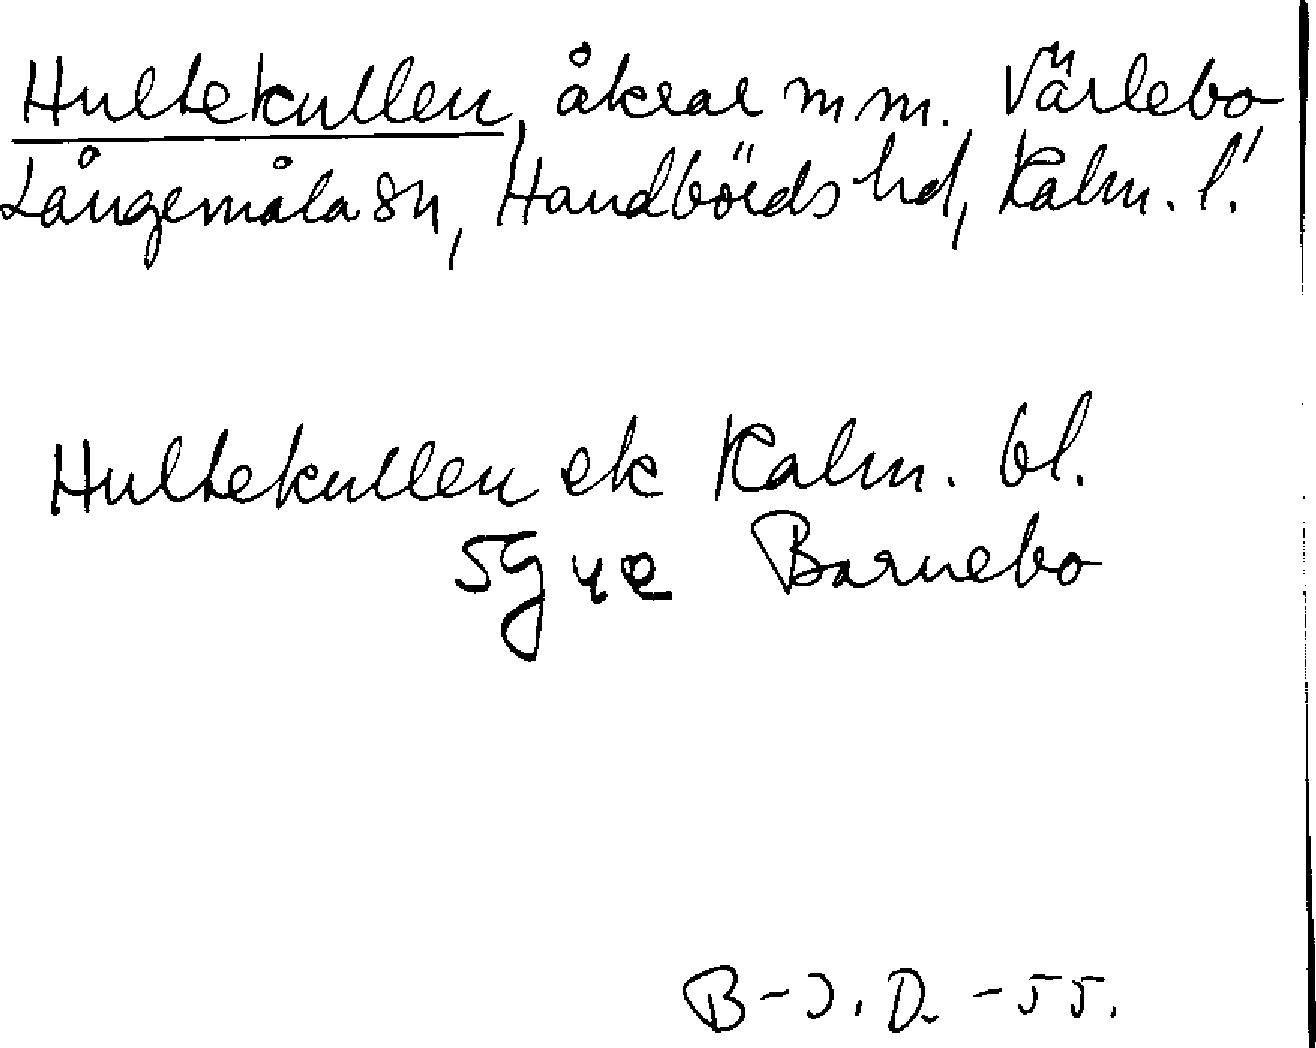 Hultekullen, åkrar m m. Värlebo
Långemåla sn, Handbörds hd, Kalm. l.
Hultekullen ek Kalm. bl.
5g 4e Barnebo
B-J. D. -55.